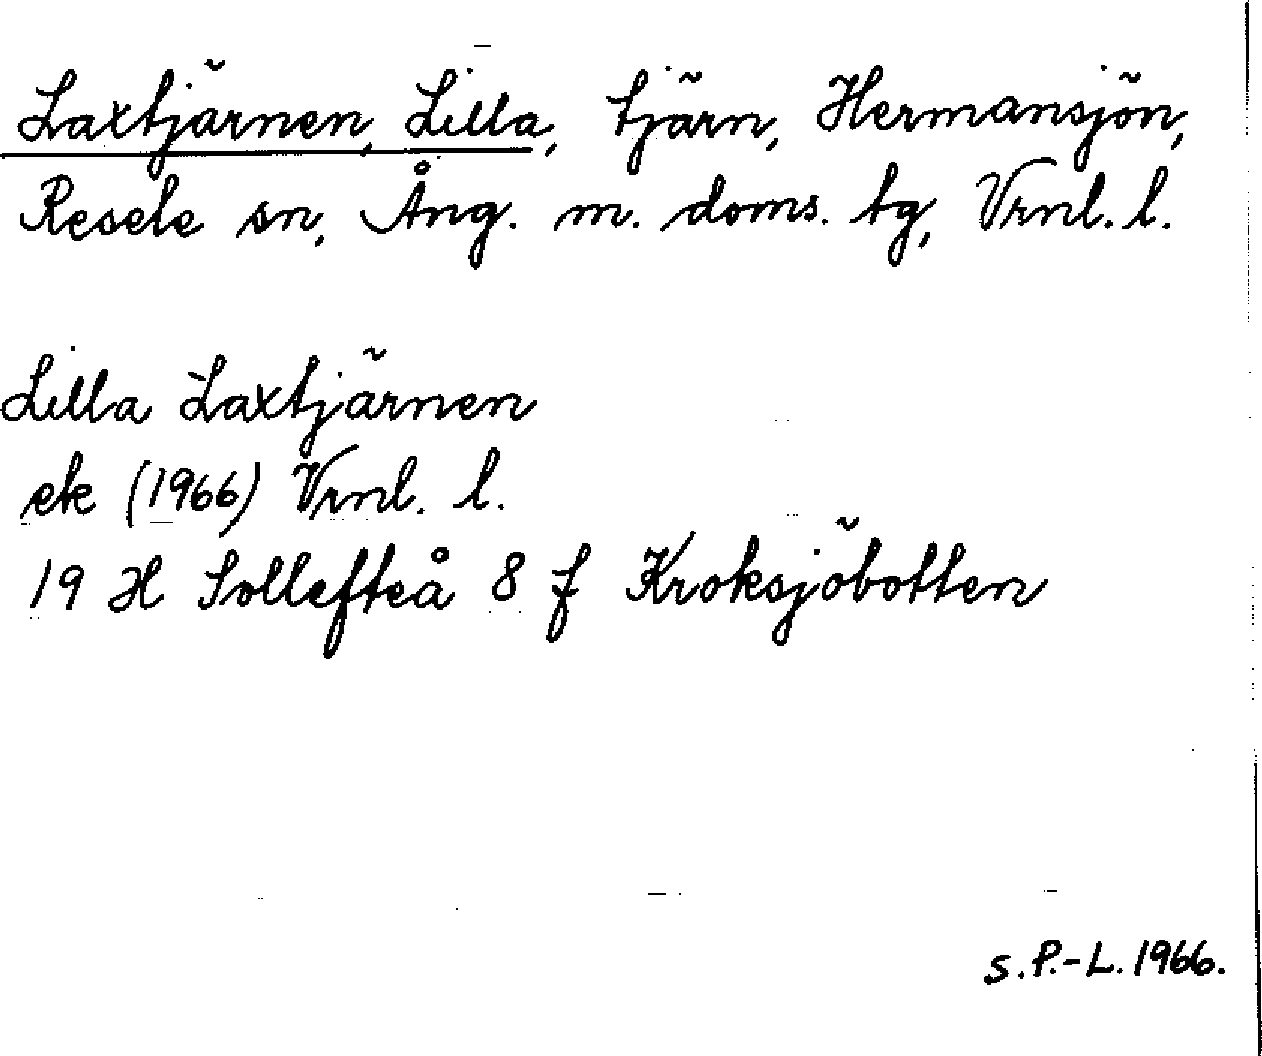 Laxtjärnen, Lilla, tjärn, Hermansjön,
Resele sn, Ång. m. doms. tg, Vrnl. l.
Lilla Laxtjärnen
ek (1966) Vrnl. l.
19 H Sollefteå 8 f Kroksjöbotten
S. P.-L. 1966.